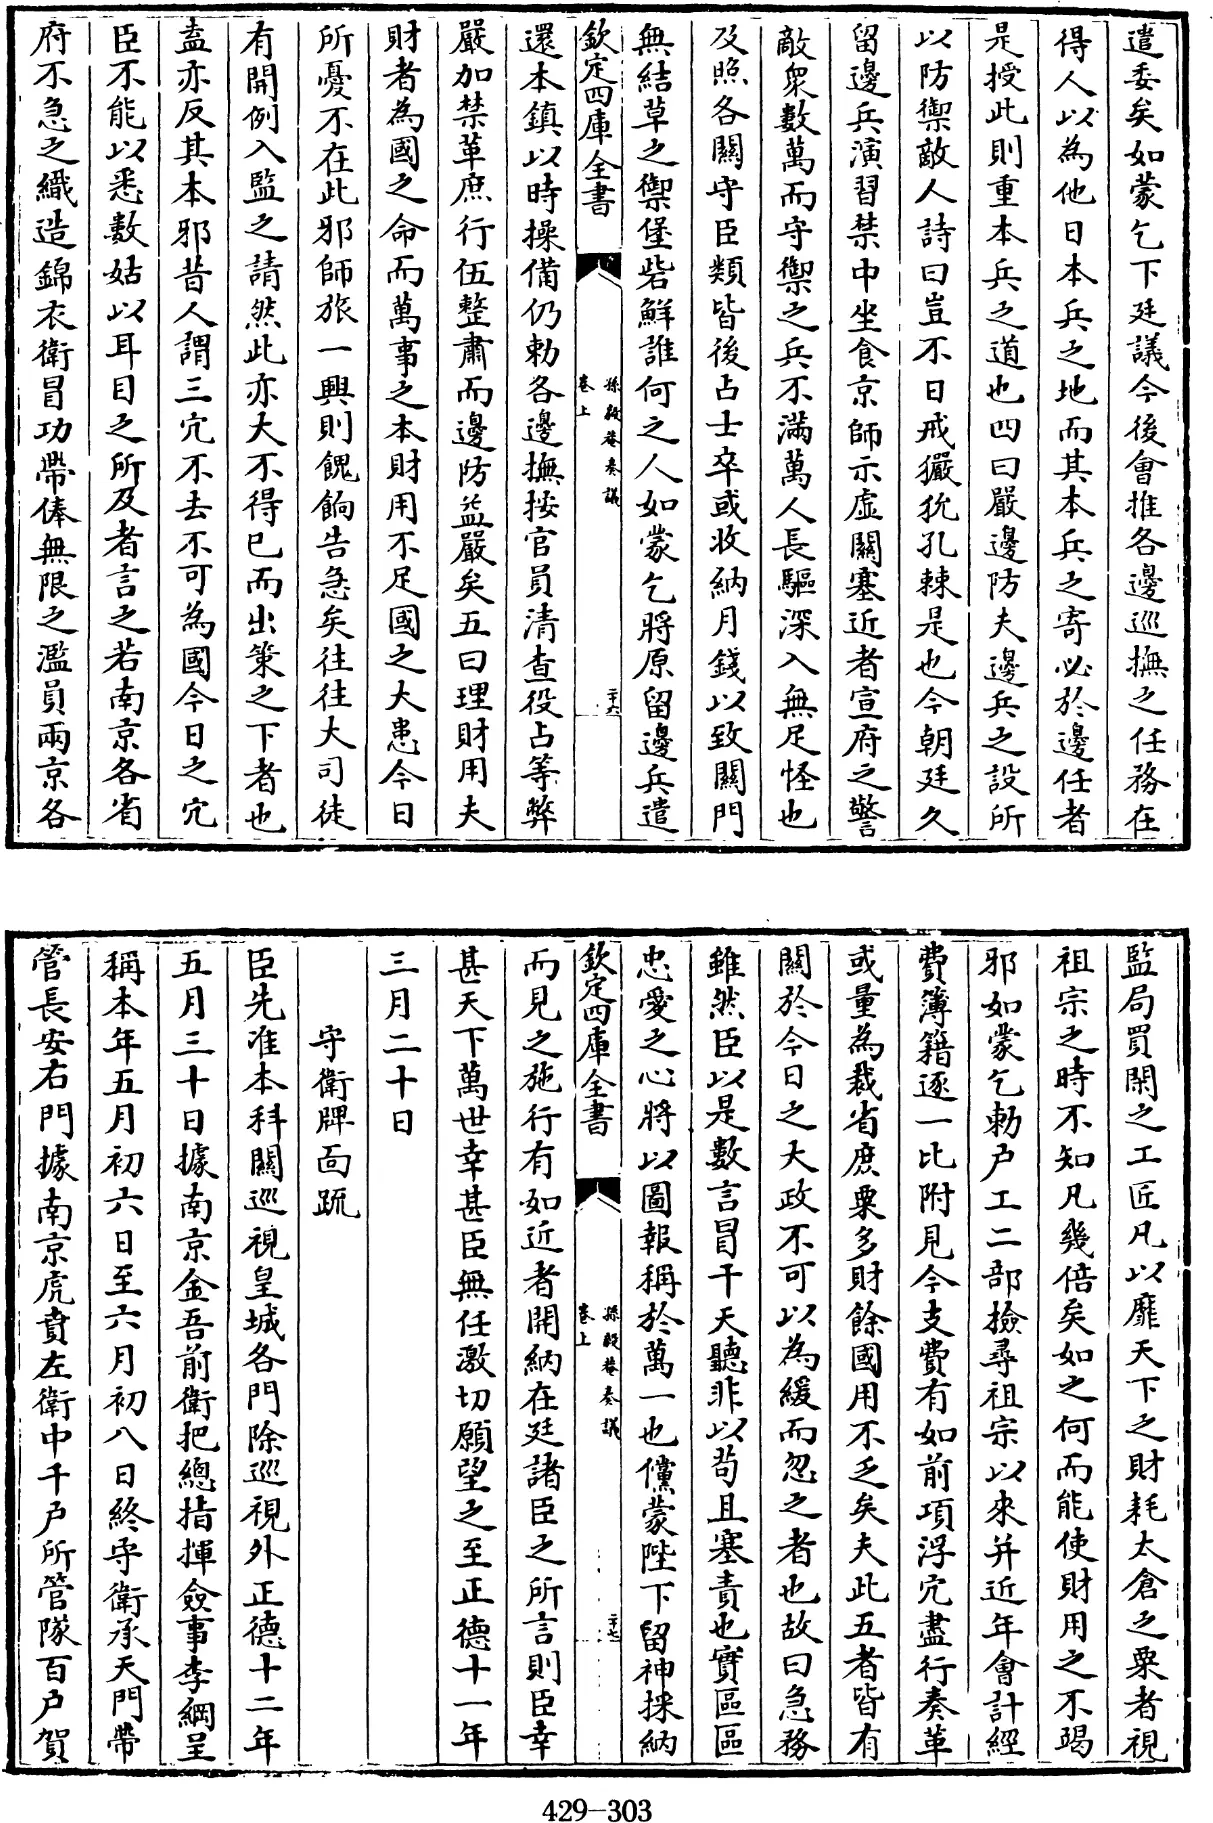 遣委矣如蒙乞下廷議今後會推各邊巡撫之任務在
得人以為他日本兵之地而其本兵之寄必於邊任者
是授此則重本兵之道也四曰嚴邊防夫邊兵之設所
以防禦敵人詩曰豈不日戒玁狁孔棘是也今朝廷久
留邊兵演習禁中坐食京師示虛關塞近者宣府之警
敵衆數萬而守禦之兵不滿萬人長驅深入無足怪也
及照各關守臣類皆後占士卒或收納月錢以致關門
無結草之禦堡砦鮮誰何之人如蒙乞將原留邊兵遣
欽定四庫全書
孫毅菴奏議
卷上
二十六
還本鎮以時操備仍勅各邊撫按官員清查役占等弊
嚴加禁革庶行伍整肅而邊防益嚴矣五曰理財用夫
財者為國之命而萬事之本財用不足國之大患今日
所憂不在此邪師旅一興則餽餉告急矣往往大司徒
有開例入監之請然此亦大不得已而出策之下者也
盍亦反其本邪昔人謂三宂不去不可為國今日之宂
臣不能以悉數姑以耳目之所及者言之若南京各省
府不急之織造錦衣衛冒功帶俸無限之濫員兩京各
監局買閑之工匠凡以靡天下之財耗太倉之粟者視
祖宗之時不知凡幾倍矣如之何而能使財用之不竭
邪如蒙乞勅户工二部檢尋祖宗以來并近年會計經
費簿籍逐一比附見今支費有如前項浮宂盡行奏革
或量為裁省庶粟多財餘國用不乏矣夫此五者皆有
關於今日之大政不可以為緩而忽之者也故曰急務
雖然臣以是數言冒干天聽非以苟且塞責也實區區
忠愛之心將以圖報稱於萬一也儻蒙陛下留神採納
欽定四庫全書
孫毅菴奏議
卷上
二十七
而見之施行有如近者開納在廷諸臣之所言則臣幸
甚天下萬世幸甚臣無任激切願望之至正德十一年
三月二十日
守衛牌面疏
臣先准本科關巡視皇城各門除巡視外正德十二年
五月三十日據南京金吾前衛把總指揮僉事李綱呈
稱本年五月初六日至六月初八日終守衛承天門帶
管長安右門據南京虎賁左衛中千户所管隊百户賀
429-303